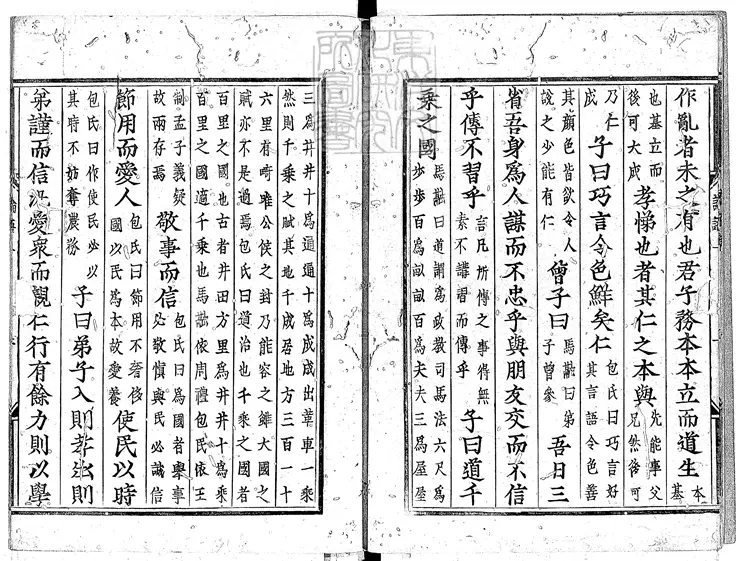 作亂者未之有也君子務本本立而道生本基
也基立而後可大成孝悌也者其仁之本與先能事父兄然後可
乃仁成子曰巧言令色鮮矣仁包氏曰巧言好其言語令色善
其顏色皆欲令人說之少能有仁曾子曰馬融曰弟子曾參吾日三
省吾身爲人謀而不忠乎與朋友交而不信
乎傳不習乎言凡所傳之事得無素不講習而傳乎子曰道千
乘之國馬融曰道謂爲政教司馬法六尺爲步步百爲畝畝百爲夫夫三爲屋屋
三爲井井十爲通通十爲成成出革車一乘然則千乘之賦其地千成居地方三百一十
六里有畸唯公侯之封乃能容之雖大國之賦亦不是過焉包氏曰道治也千乘之國者
百里之國也古者井田方里爲井井十爲乘百里之國適千乘也馬融依周禮包氏依王
制孟子義疑故兩存焉敬事而信包氏曰爲國者舉事必敬愼與民必誠信
節用而愛人包氏曰節用不奢侈國以民爲本故愛養使民以時
包氏曰作使民必以其時不妨奪農務子曰弟子入則孝出則
弟謹而信汎愛衆而親仁行有餘力則以學